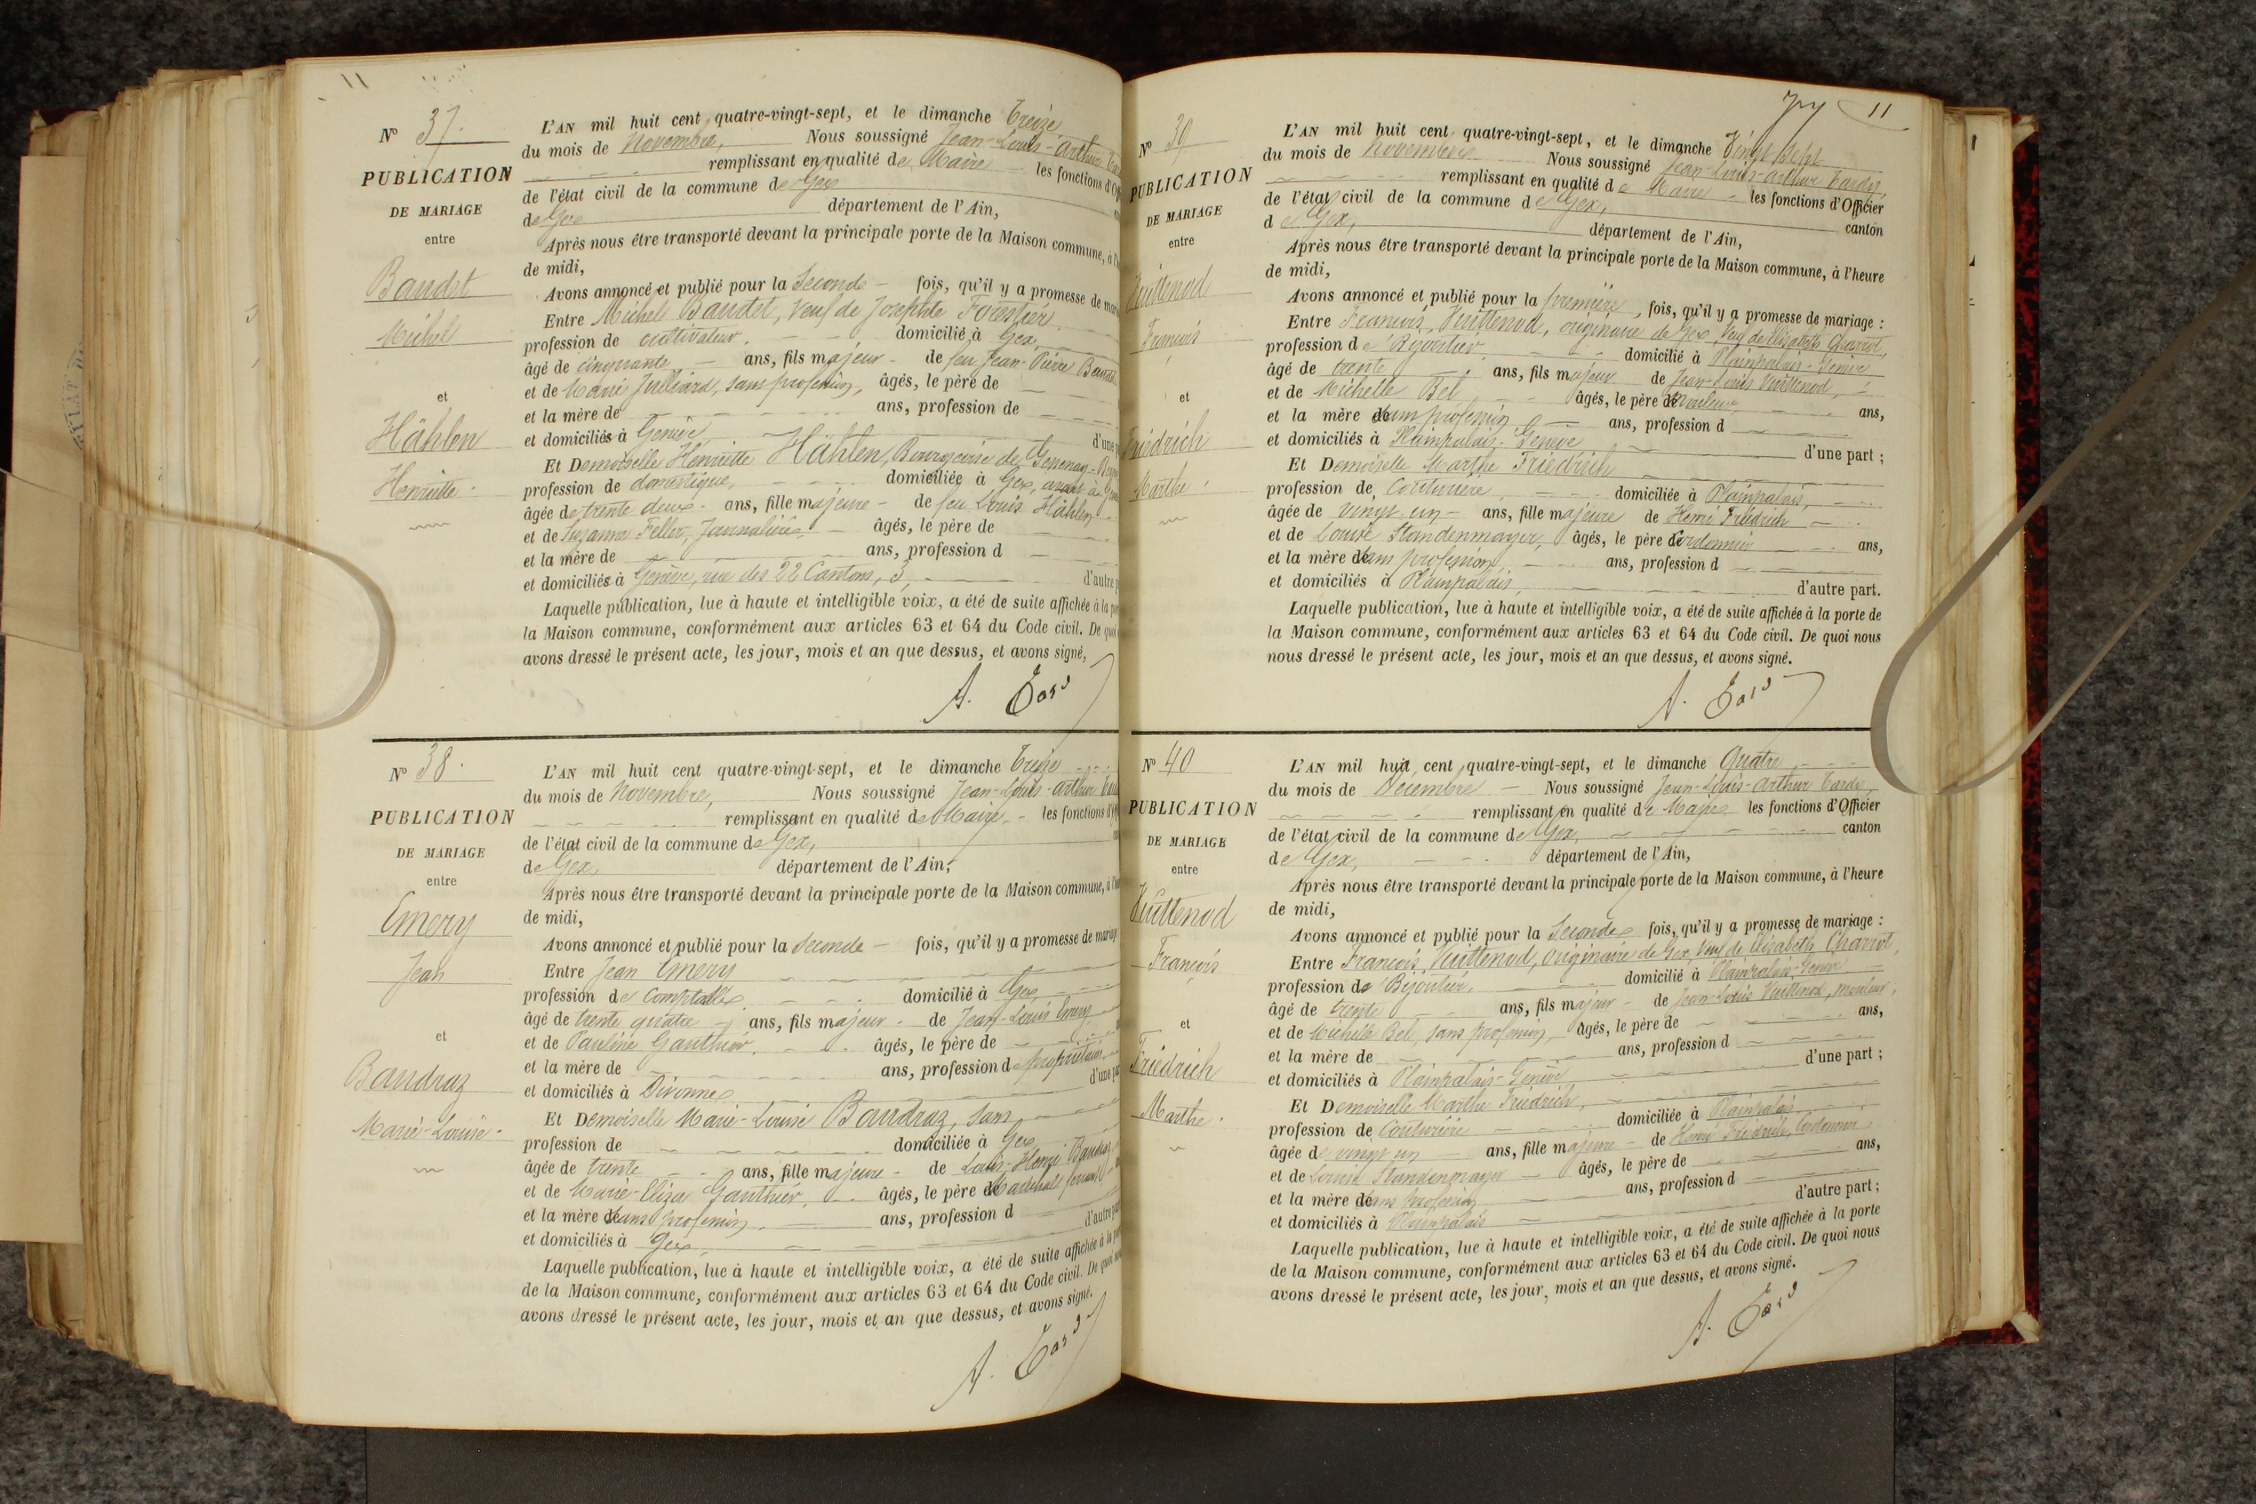 11
N° 37.
PUBLICATION
DE MARIAGE
entre
Baudet
Michel
et
Hählen
Henriette.
L'AN mil huit cent quatre-vingt-sept, et le dimanche Treize
du mois de Novembre, Nous soussigné Jean-Louis-Arthur
remplissant en qualité de Maire les fonctions d'
de l'état civil de la commune de Gex
de Gex département de l'Ain,
Après nous être transporté devant la principale porte de la Maison commune, à
de midi,
Avons annoncé et publié pour la Seconde fois, qu'il y a promesse de
Entre Michel Baudet, Veuf de Josephte Forestier
profession de cultivateur. domicilié à Gex,
âgé de cinquante ans, fils majeur de feu Jean-Pierre
et de Marie Julliard, sans profession, âgés, le père de
et la mère de ans, profession de
et domiciliés à Genève d'une
Et Demoiselle Henriette Hählen, Bourgeoise de Gessenay
profession de domestique, domiciliée à Gex, avant à
âgée de trente deux. ans, fille majeure de feu Louis Hählen
et de Suzanne Feller, Journalière, âgés, le père de
et la mère de ans, profession d
et domiciliés à Genève, rue des 22 Cantons, 3, d'autre
Laquelle publication, lue à haute et intelligible voix, a été de suite affichée à la
la Maison commune, conformément aux articles 63 et 64 du Code civil. De quoi
avons dressé le présent acte, les jour, mois et an que dessus, et avons signé,
A. Tardy
N° 38.
PUBLICATION
DE MARIAGE
entre
Emery
Jean
et
Baudraz
Marie-Louise.
L'AN mil huit cent quatre-vingt-sept, et le dimanche Treize
du mois de Novembre, Nous soussigné Jean-Louis-Arthur
remplissant en qualité de Maire les fonctions
de l'état civil de la commune de Gex,
de Gex, département de l'Ain,
Après nous être transporté devant la principale porte de la Maison commune, à
de midi,
Avons annoncé et publié pour la Seconde fois, qu'il y a promesse de
Entre Jean Emery
profession de Comptable domicilié à Gex
âgé de trente quatre ans, fils majeur. de Jean-Louis Emery
et de Pauline Gauthier. âgés, le père de
et la mère de ans, profession de propriétaires
et domiciliés à Divonne d'une
Et Demoiselle Marie-Louise Baudraz, sans
profession de domiciliée à Gex
âgée de trente ans, fille majeure de Louis-Henri Baudraz
et de Marie-Eliza Gauthier, âgés, le père de Maréchal ferrant
et la mère de sans profession ans, profession d
et domiciliés à Gex, d'autre
Laquelle publication, lue à haute et intelligible voix, a été de suite affichée à la
de la Maison commune, conformément aux articles 63 et 64 du Code civil. De quoi
avons dressé le présent acte, les jour, mois et an que dessus, et avons signé.
A. Tardy
11
N° 39
PUBLICATION
DE MARIAGE
entre
Vuittenod
François
et
Friedrich
Marthe.
L'AN mil huit cent quatre-vingt-sept, et le dimanche Vingt Sept
du mois de Novembre Nous soussigné Jean-Louis-Arthur Tardy,
remplissant en qualité de Maire les fonctions d'Officier
de l'état civil de la commune de Gex, canton
de Gex, département de l'Ain,
Après nous être transporté devant la principale porte de la Maison commune, à l'heure
de midi,
Avons annoncé et publié pour la première, fois, qu'il y a promesse de mariage :
Entre François Vuittenod, originaire de Gex, Veuf de Elisabeth Charrot,
profession de Bijoutier domicilié à Plainpalais-Genève
âgé de trente ans, fils majeur de Jean-Louis Vuittenod,
et de Michelle Bel âgés, le père de mouleur, ans,
et la mère de sans profession, ans, profession d
et domiciliés à Plainpalais-Genève d'une part ;
Et Demoiselle Marthe Friedrich
profession de Couturière, domiciliée à Plainpalais,
âgée de vingt un ans, fille majeure de Henri Friedrich
et de Louise Standenmayer, âgés, le père de Cordonnier ans,
et la mère de sans profession, ans, profession d
et domiciliés à Plainpalais, d'autre part.
Laquelle publication, lue à haute et intelligible voix, a été de suite affichée à la porte de
la Maison commune, conformément aux articles 63 et 64 du Code civil. De quoi nous
nous dressé le présent acte, les jour, mois et an que dessus, et avons signé.
A. Tardy
N° 40
PUBLICATION
DE MARIAGE
entre
Vuittenod
François
et
Friedrich
Marthe.
L'AN mil huit cent quatre-vingt-sept, et le dimanche Quatre
du mois de Décembre Nous soussigné Jean-Louis-Arthur Tardy,
remplissant en qualité de Maire les fonctions d'Officier
de l'état civil de la commune de Gex, canton
de Gex, département de l'Ain,
Après nous être transporté devant la principale porte de la Maison commune, à l'heure
de midi,
Avons annoncé et publié pour la Seconde fois, qu'il y a promesse de mariage :
Entre François Vuittenod, originaire de Gex, Veuf de Elisabeth Charrot,
profession de Bijoutier. domicilié à Plainpalais-Genève
âgé de trente ans, fils majeur de Jean-Louis Vuittenod, mouleur,
et de Michelle Bel, sans profession, âgés, le père de ans,
et la mère de ans, profession d
et domiciliés à Plainpalais-Genève d'une part ;
Et Demoiselle Marthe Friedrich,
profession de Couturière domiciliée à Plainpalais
âgée de vingt un ans, fille majeure de Henri Friedrich, Cordonnier
et de Louise Standenmayer âgés, le père de ans,
et la mère de sans profession ans, profession d
et domiciliés à Plainpalais d'autre part ;
Laquelle publication, lue à haute et intelligible voix, a été de suite affichée à la porte
de la Maison commune, conformément aux articles 63 et 64 du Code civil. De quoi nous
avons dressé le présent acte, les jour, mois et an que dessus, et avons signé.
A. Tardy